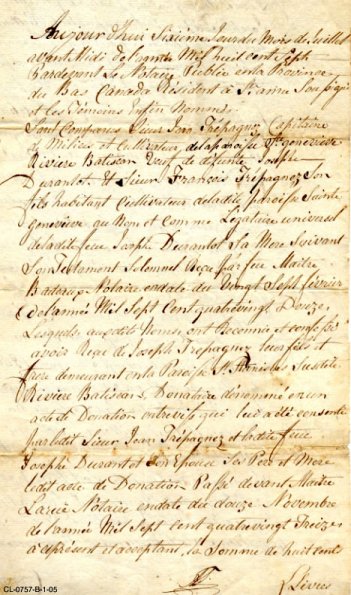 Aujourd'hui Sixieme Jour du Mois de Juillet
avant Midi de l'année Mil huit cent Sept
Pardevant Le Notaire Publice en la Province
du Bas Canada Résident à Ste anne Soussigné
et les Témoins Enfin Nommés
Sont Comparus Sieur Jean Trépagnez Capitaine
de Milice et Cultivateur de la paroisse Ste genevieve
Riviere Batiscan Veuf de défunte Joseph
Durantot. Et Sieur François Trepagnez Son
fils habitant Cultivateur de ladite paroisse Sainte
genevieve au Nom et comme Légataire universel
de ladite feue Joseph Durantot Sa Mere Suivant
Son Testament Solomnel Reçu par feu Maitre
Notaire en date du Vingt Sept février
de l'année Mil Sept Cent quatrevingt Douze
Lesquels auxdits Noms, ont Reconnu et confessé
avoir Reçu de Joseph Trepagnez leur fils et
frere demeurant en la Paroisse St Stanislas Susdite
Riviere Batiscan, Donataire denommé en un
acte de Donation entrevifs qui lui a été consenti
par ledit Sieur Jean Trépagnez et ladite feue
Joseph Durantot Son Epouse Ses Pere et Mere
ledit acte de Donation Passé devant Maitre
Notaire en date du douze Novembre
de l'année Mil Sept cent quatrevingt treize
à ce présent et acceptant, la Somme de huit cents
Livres
CL-0757-B-1-05